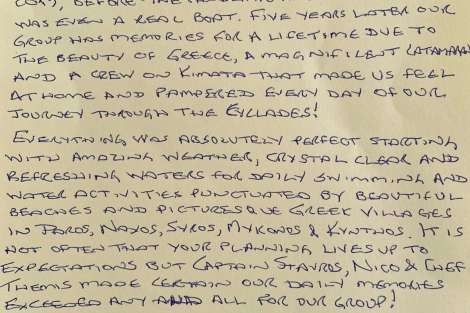 WAS EVEN A REAL BOAT. FIVE YEARS LATER OUR
GROUP HAS MEMORIES FOR A LIFETIME DUE TO
THE BEAUTY OF GREECE, A MAGNIFICENT CATAMARAN
AND A CREW ON KIMATA THAT MADE US FEEL
AT HOME AND PAMPERED EVERY DAY OF OUR
JOURNEY THROUGH THE CYCLADES!
EVERYTHING WAS ABSOLUTELY PERFECT STARTING
WITH AMAZING WEATHER, CRYSTAL CLEAR AND
REFRESHING WATERS FOR DAILY SWIMMING AND
WATER ACTIVITIES PUNCTUATED BY BEAUTIFUL
BEACHES AND PICTURESQUE GREEK VILLAGES
IN PAROS, NAXOS, SYROS, MYKONOS & KYNTHOS. IT IS
NOT OFTEN THAT YOUR PLANNING LIVES UP TO
EXPECTATIONS BUT CAPTAIN STAVROS, NICO & CHEF
THEMIS MADE CERTAIN OUR DAILY MEMORIES
EXCEEDED ANY AND ALL FOR OUR GROUP!